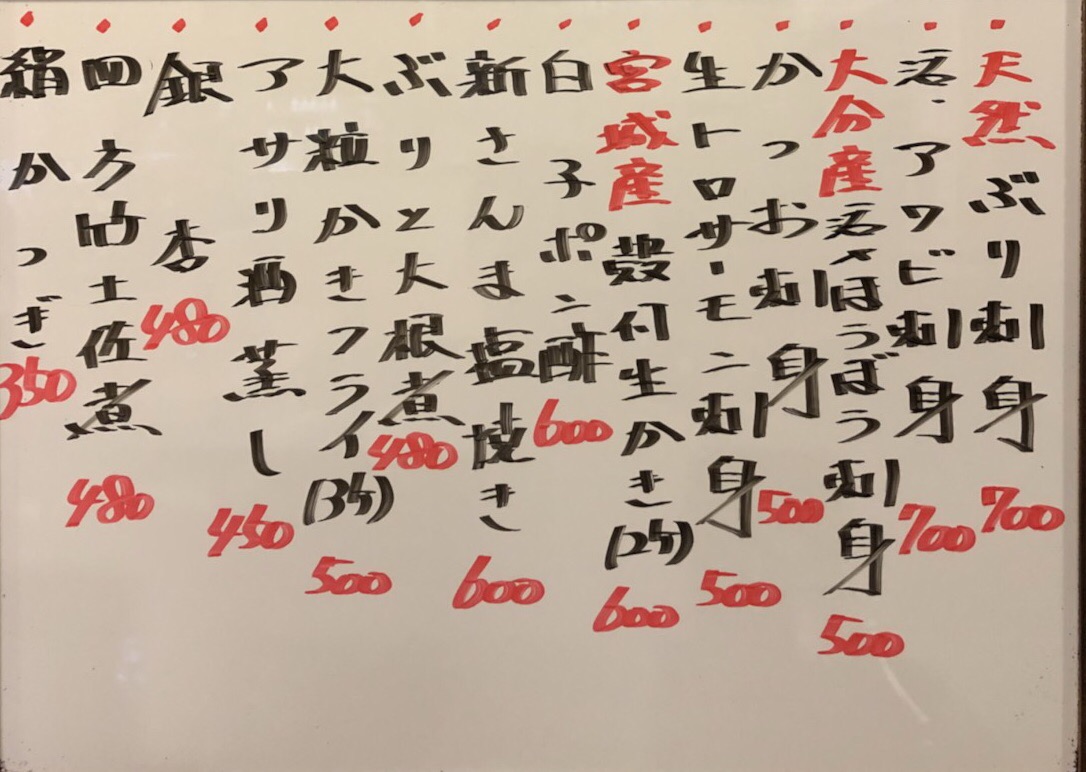 天然ぶり刺身 700
活・アワビ刺身 700
大分産活〆ほうぼう刺身 500
かつお刺身 500
生トロサーモン刺身 500
宮城産殻付生かき(2ケ) 600
白子ポン酢 600
新さんま塩焼き 600
ぶりと大根煮 480
大粒かきフライ(3ケ) 500
アサリ酒蒸し 450
銀杏 480
四方竹土佐煮 480
絹かつぎ 350